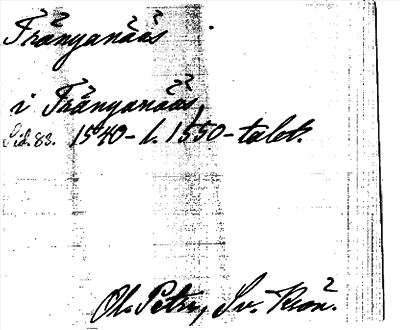 Trånganäās
i Trånganäās,
Sid. 83. 1540- l. 1550-talet.
Ol. Petri, Sv. Krön.